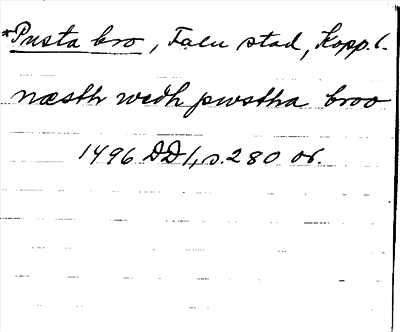 *Pusta bro, Falu stad, Kopp. l.
næsth wedh pwstha broo
1496 DD 1, s. 280 or.